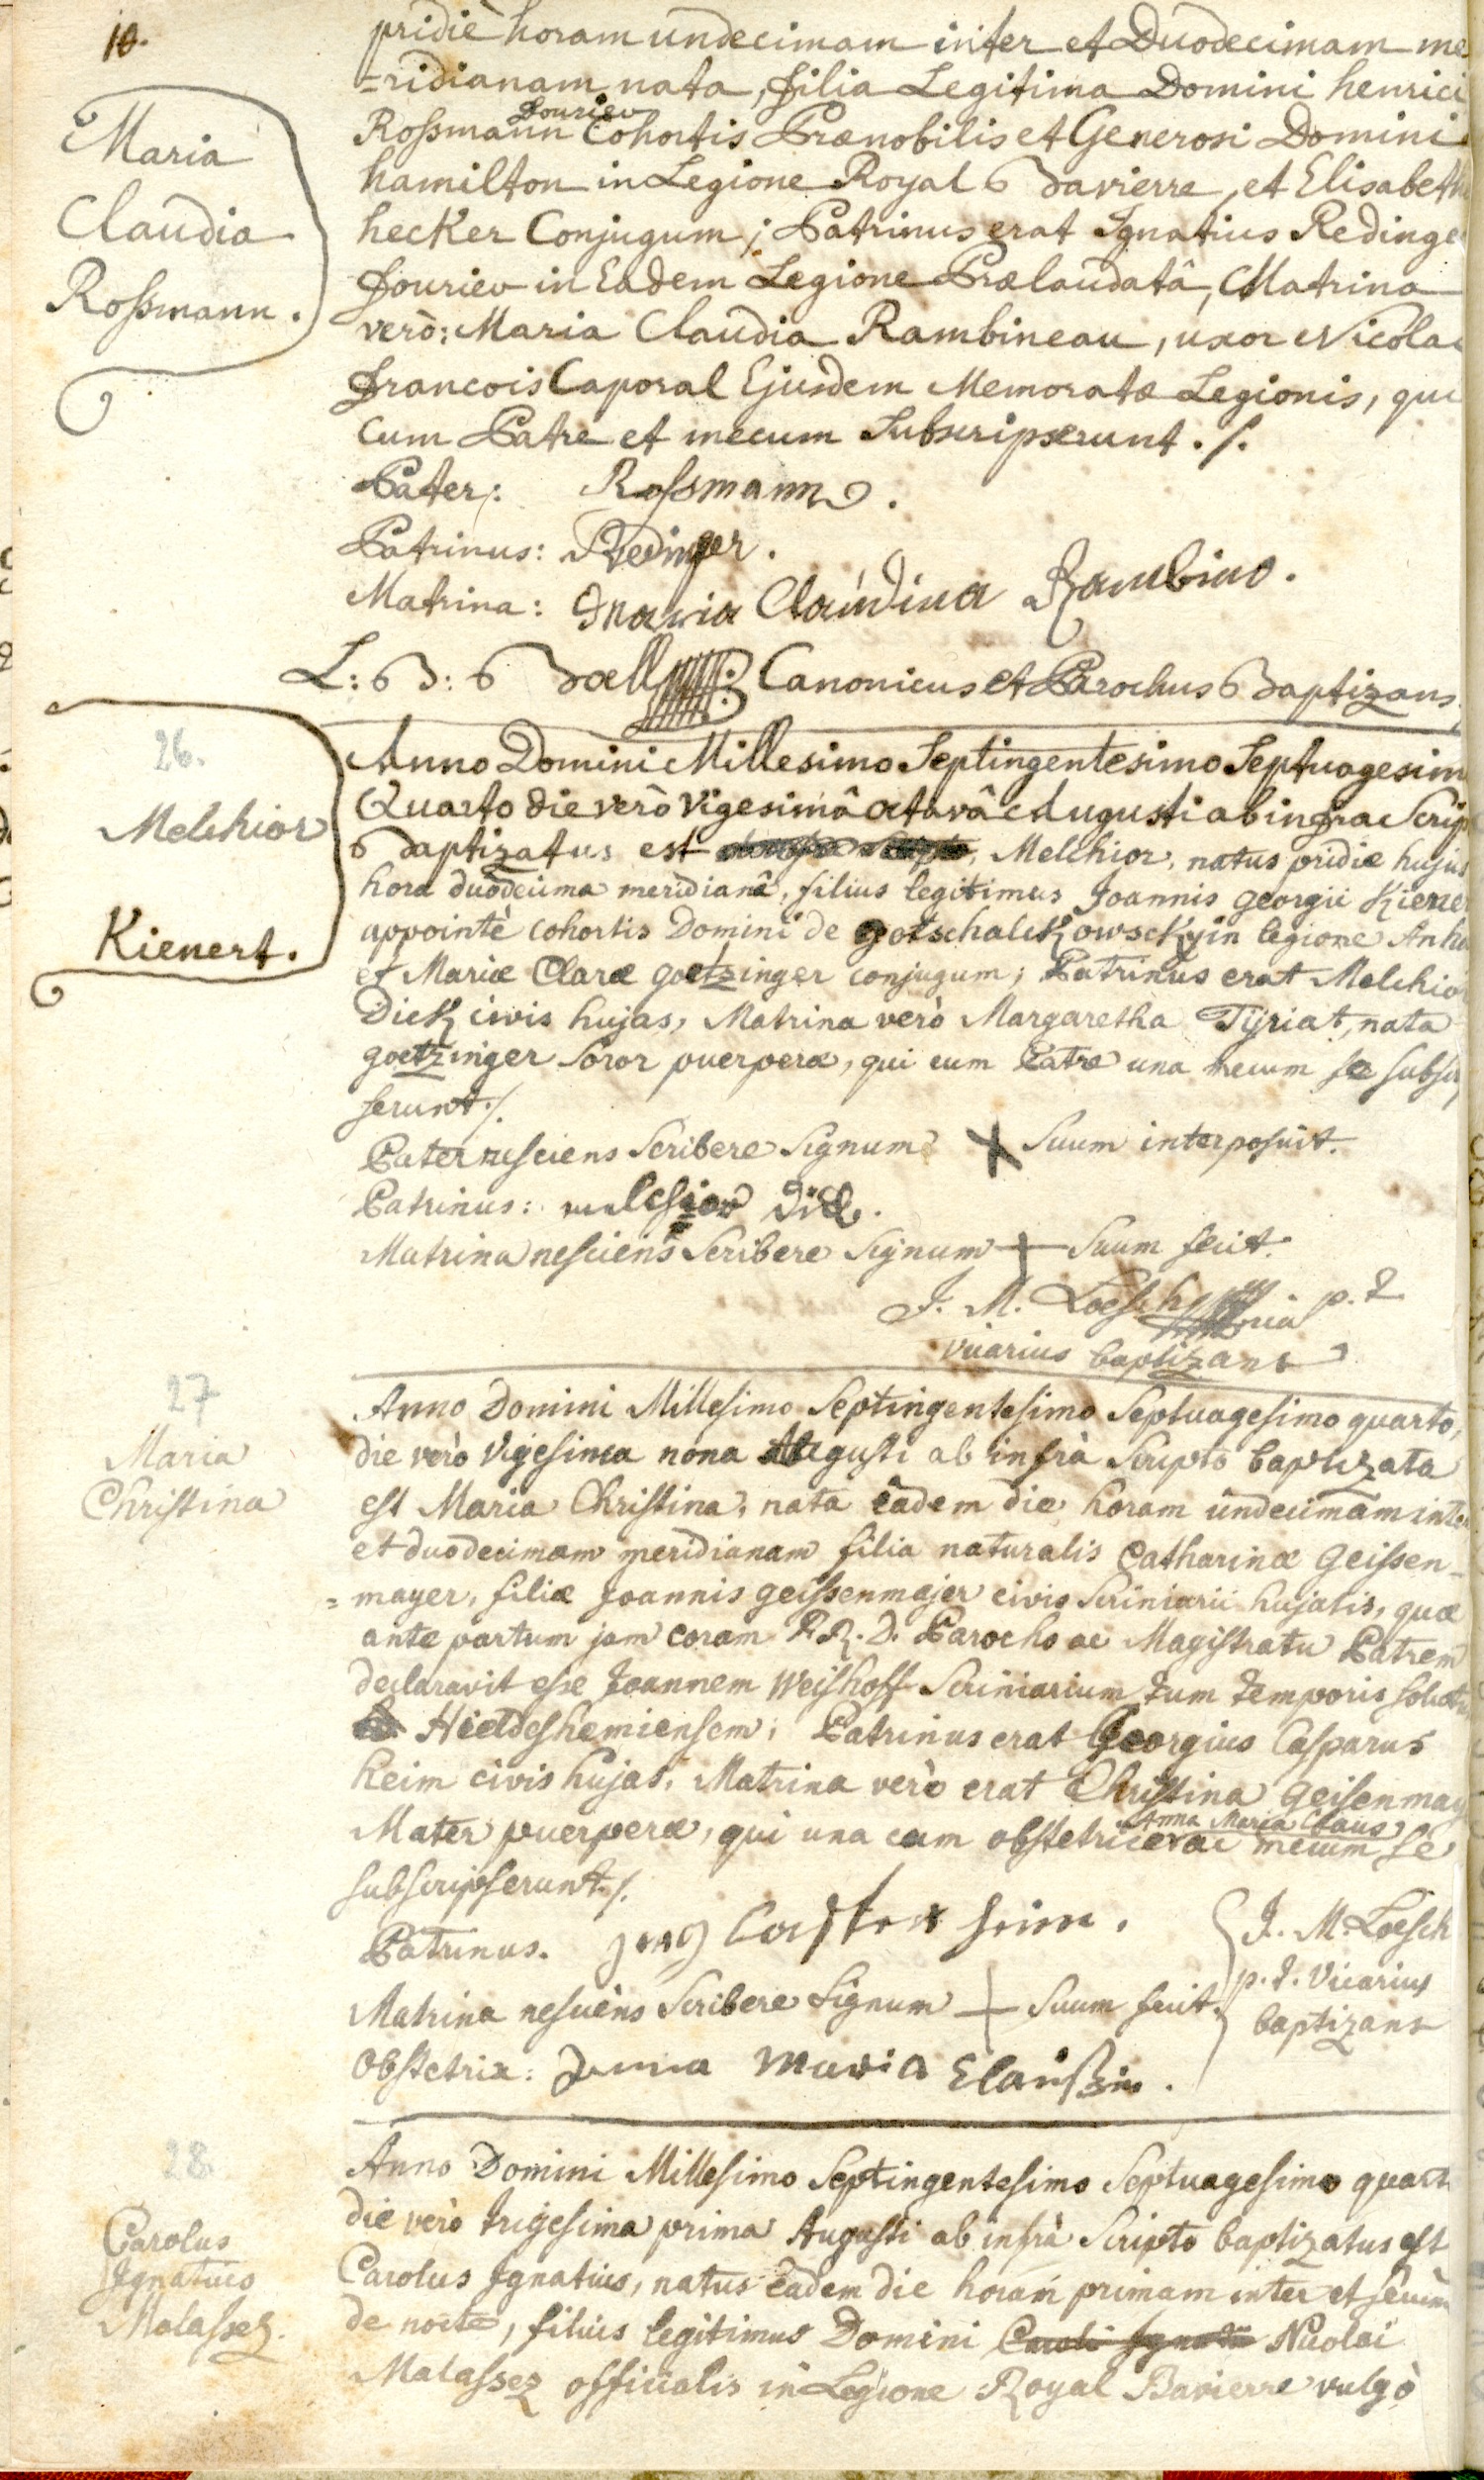 10.
pridiè horam undecimam inter et Duodecimam me
=ridianam nata, filia Legitima Domini henrici
Maria
Claudia
Rossmann.
fourier
Rossmann Cohortis Prænobilis et Generosi Domini
hamilton in Legione Royal Bavierre, et Elisabeth
hecker Conjugum; Patrinus erat Ignatius Redinge
fourier in Eadem Legione Prælaudatâ, Matrina
verò: Maria Claudia Rambineau, uxor Nicolai
francois Caporal Ejusdem Memoratæ Legionis, qui
Cum Patre et mecum Subscripserunt ./.
Pater: Rossmann.
Patrinus: Redinger.
Matrina: Maria Claudina Rambino.
L: B: Canonicus et Parochus Baptizans
26.
Melchior
Kienert.
Anno Domini Millesimo Septingentesimo Septuagesim
Quarto die verò Vigesimâ octavâ Augusti ab infra Scrip
Baptizatus est Melchior, natus pridie hujus
hora duodecima meridianâ, filius legitimus Joannis georgii Kiene
appointè cohortis Domini de gotschalckowscky in legione Anha
et Mariæ Claræ goetzinger conjugum; Patrinus erat Melchior
Dick civis hujas, Matrina verò Margaretha Tyriat, nata
goetzinger Soror puerperæ, qui cum Patre una mecum se subscrip
serunt ./.
Pater nesciens Scribere Signum X Suum interposuit.
Patrinus: melchior Dick.
Matrina nesciens Scribere Signum + Suum fecit.
J. M. Loesch p. t.
vicarius baptizans
27
Maria
Christina
Anno Domini Millesimo Septingentesimo Septuagesimo quarto,
die verò Vigesima nona Augusti ab infrà Scripto baptizata
est Maria Christina, nata eâdem die horam undecimam inter
et duodecimam meridianam filia naturalis Catharinæ Geissen-
=mayer, filiæ Joannis geissenmajer civis Scriniarii hujatis, quæ
ante partum jam coram R.R. D. Parocho ac Magistratu Patrem
declaravit esse Joannem Weishoff Scriniarium tum temporis
Hieldeshemiensem; Patrinus erat Georgius Casparus
heim civis hujas, Matrina verò erat Christina geisenmay
Anna Maria Claus
Mater puerperæ, qui una cum obstetrice ac mecum se
subscripserunt ./.
Patrinus. Caspar heim.
Matrina nesciens Scribere Signum + Suum fecit.
Obstetrix: Anna Maria Claussin.
J. M. Loesch
p. t. Vicarius
baptizans
28.
Carolus
Ignatius
Malassez.
Anno Domini Millesimo Septingentesimo Septuagesimo quart
die verò trigesima prima Augusti ab infrà Scripto baptizatus est
Carolus Ignatius, natus eâdem die horam primam inter et secun
de nocte, filius legitimus Domini Caroli Ignatii Nicolai
Malassez officialis in Legione Royal Bavierre vulgò